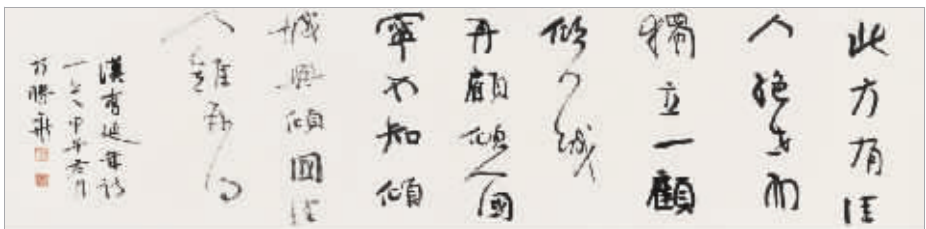 北方有佳
人絕世而
獨立一顧
傾人城
再顧傾人國
寧不知傾
城與傾國佳
人難再得
漢李延年詩